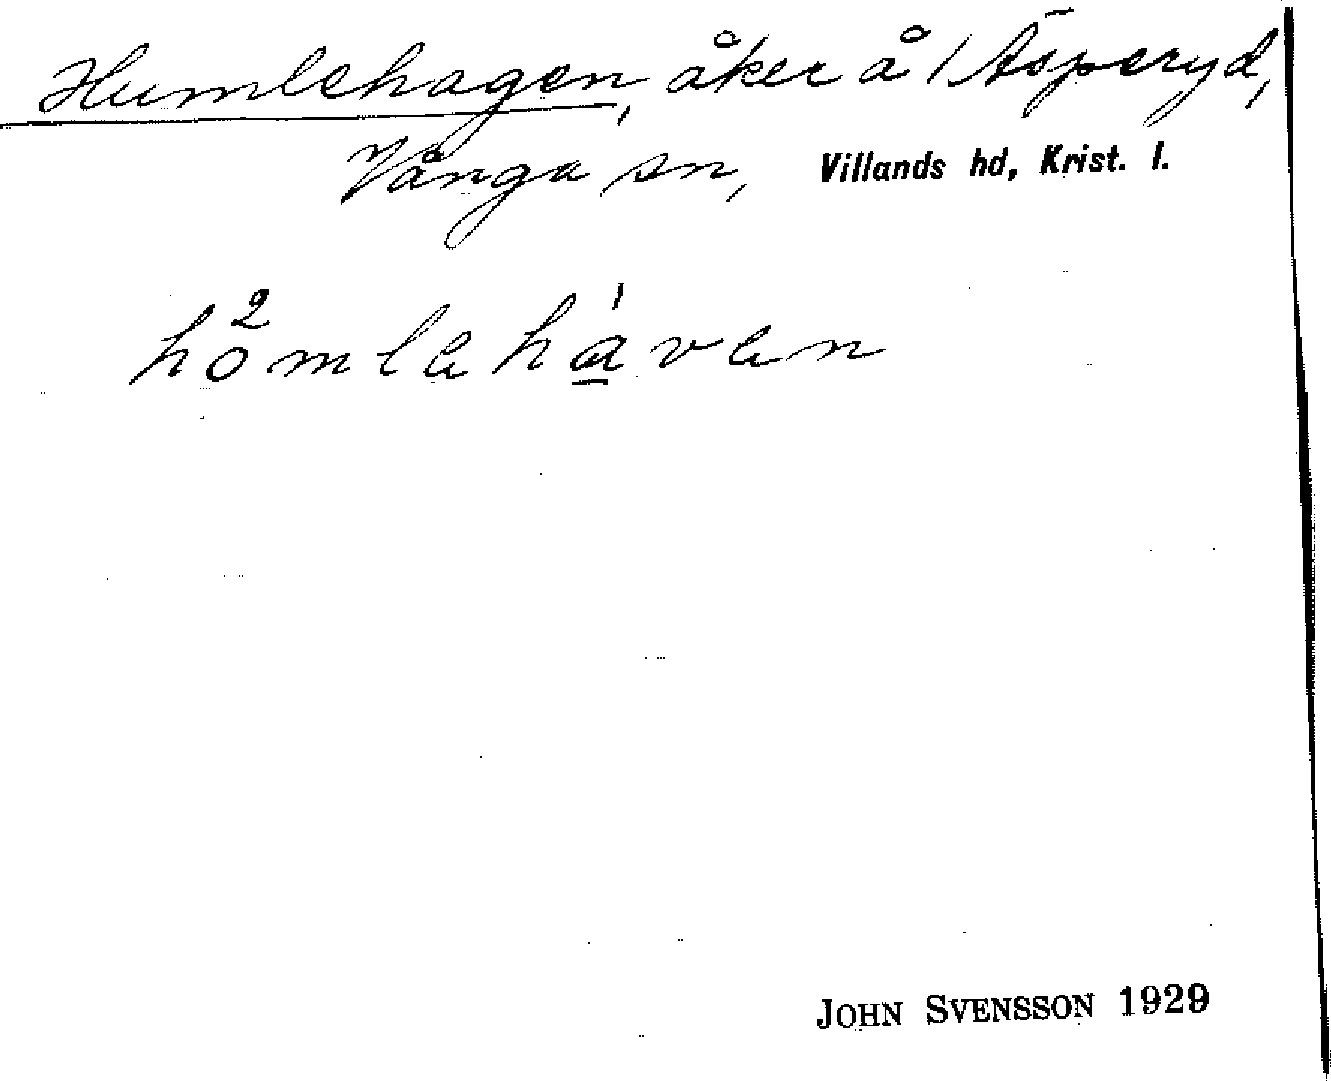 Humlehagen, åker å /Äsperyd,
Vånga sn, Villands hd, Krist. l.
hömlahávan
JOHN SVENSSON 1929